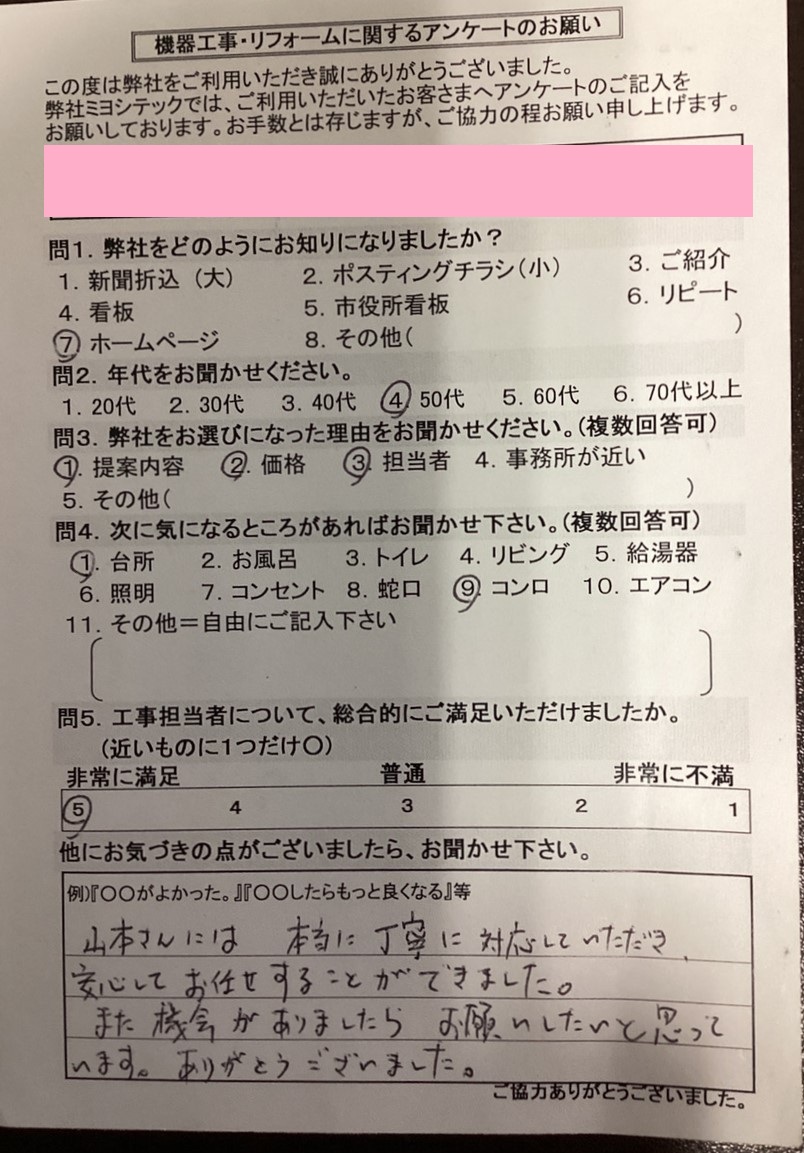 機器工事・リフォームに関するアンケートのお願い
この度は弊社をご利用いただき誠にありがとうございました。
弊社ミヨシテックでは、ご利用いただいたお客さまへアンケートのご記入を
お願いしております。お手数とは存じますが、ご協力の程お願い申し上げます。
問1. 弊社をどのようにお知りになりましたか？
1. 新聞折込（大） 2. ポスティングチラシ（小） 3. ご紹介
4. 看板 5. 市役所看板 6. リピート
7 ホームページ 8. その他( )
問2. 年代をお聞かせください。
1. 20代 2. 30代 3. 40代 4. 50代 5. 60代 6. 70代以上
問3. 弊社をお選びになった理由をお聞かせください。(複数回答可)
1. 提案内容 2. 価格 3. 担当者 4. 事務所が近い
5. その他( )
問4. 次に気になるところがあればお聞かせ下さい。(複数回答可)
1. 台所 2. お風呂 3. トイレ 4. リビング 5. 給湯器
6. 照明 7. コンセント 8. 蛇口 9. コンロ 10. エアコン
11. その他＝自由にご記入下さい
問5. 工事担当者について、総合的にご満足いただけましたか。
(近いものに1つだけ〇)
非常に満足 普通 非常に不満
5 4 3 2 1
他にお気づきの点がございましたら、お聞かせ下さい。
例)『〇〇がよかった。』『〇〇したらもっと良くなる』等
山本さんには 本当に丁寧に対応していただき、
安心してお任せすることができました。
また機会がありましたら お願いしたいと思って
います。ありがとうございました。
ご協力ありがとうございました。